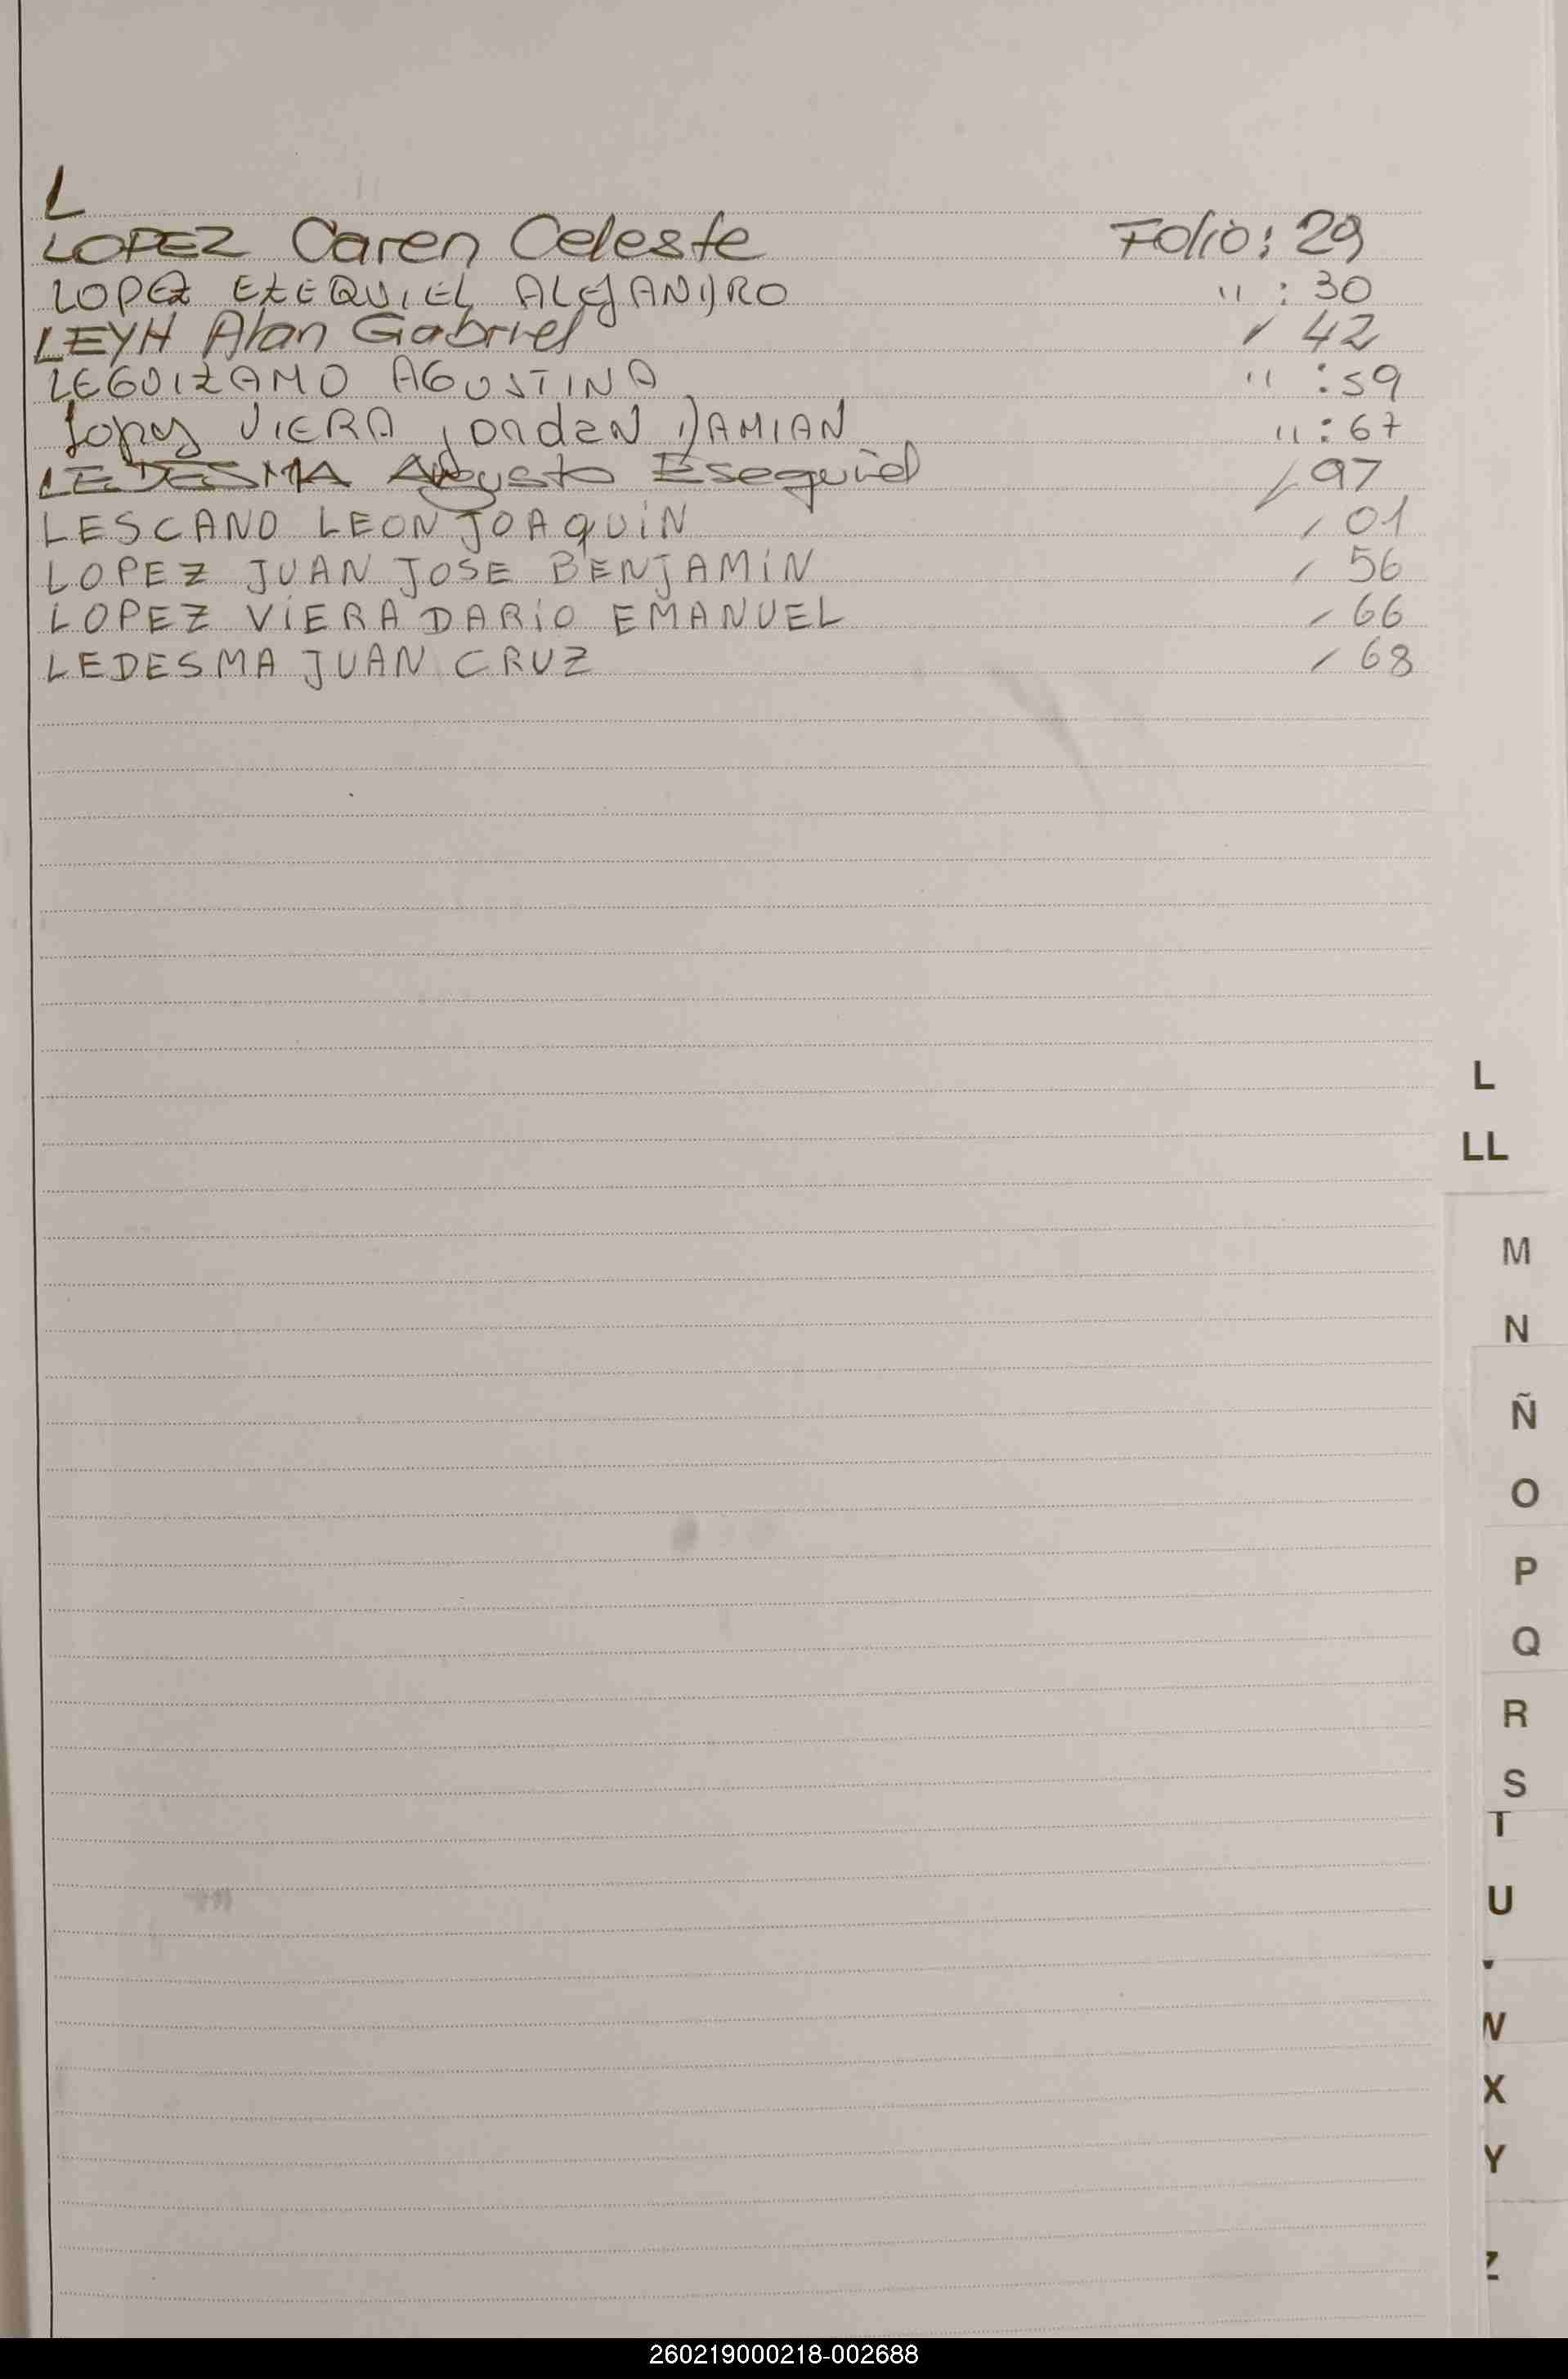 L
LOPEZ Caren Celeste Folio: 29
LOPEZ EZEQUIEL ALEJANDRO " : 30
LEYH Alan Gabriel / 42
LEGUIZAMO AGUSTINA " : 59
Lopez VIERA JordaN DAMIAN " : 67
LEDESMA Augusto Esequiel / 97
LESCANO LEON JOAQUIN / 01
LOPEZ JUAN JOSE BENJAMIN / 56
LOPEZ VIERA DARIO EMANUEL / 66
LEDESMA JUAN CRUZ / 68
L
LL
M
N
Ñ
O
P
Q
R
S
T
U
X
Y
Z
260219000218-002688